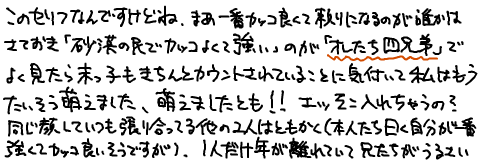 このセリフなんですけどね、まあ一番カッコ良くて頼りになるのが誰かは
さておき「砂漠の民でカッコよくて強い」のが「オレたち四兄弟」で
よく見たら末っ子もきちんとカウントされていることに気付いて私はもう
たいそう萌えました、萌えましたとも!! エッそこ入れちゃうの?
同じ族していつも張り合ってる他の2人はともかく(本人たち曰く自分が一番
強くてカッコ良いそうですが)、1人だけ年が離れていて兄たちがうるさい